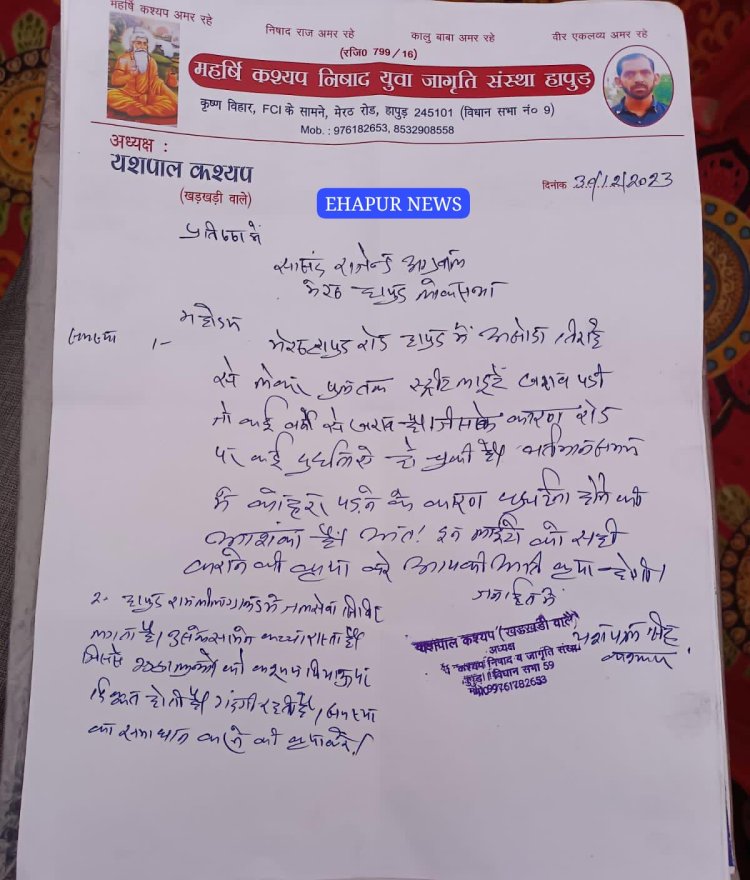 महर्षि कश्यप अमर रहे
निषाद राज अमर रहे कालु बाबा अमर रहे वीर एकलव्य अमर रहे
(रजि0 799/16)
महर्षि कश्यप निषाद युवा जागृति संस्था हापुड़
कृष्ण विहार, FCI के सामने, मेरठ रोड, हापुड़ 245101 (विधान सभा नं० 9)
Mob. : 976182653, 8532908558
अध्यक्ष :
यशपाल कश्यप
(खड़खड़ी वाले)
दिनांक 30/12/2023
EHAPUR NEWS
सासंद राजेन्द्र अग्रवाल
मेरठ हापुड लोकसभा
महोदय
समस्या 1- मेरठ हापुड रोड हापुड में तिराहे
से लेकर पुल तक स्ट्रीट लाईटें खराब पडी
जो कई वर्षो से खराब है। जिसके कारण रोड
पर कई दुर्घटनाऐ हो चुकी है। वर्तमान समय
में कोहरा पड़ने के कारण दुर्घटना होने की
आशंका है। अंत! इन लाईटो को सही
कराने की कृपा करे आपकी अति कृपा होगी।
जनहित में
2- हापुड रामलीला ग्राउंड में जलसेवा शिविर
लगता है। उसके सामने कच्चा रास्ता है।
जिससे को
दिक्कत होती है। गंदगी रहती है। समस्या
का समाधान कराने की कृपा करें।
यशपाल कश्यप (खडखडी वाले)
अध्यक्ष
कश्यप निषाद य जागृति संस्था
विधान सभा 59
09761782653
यशपाल सिंह
कश्यप